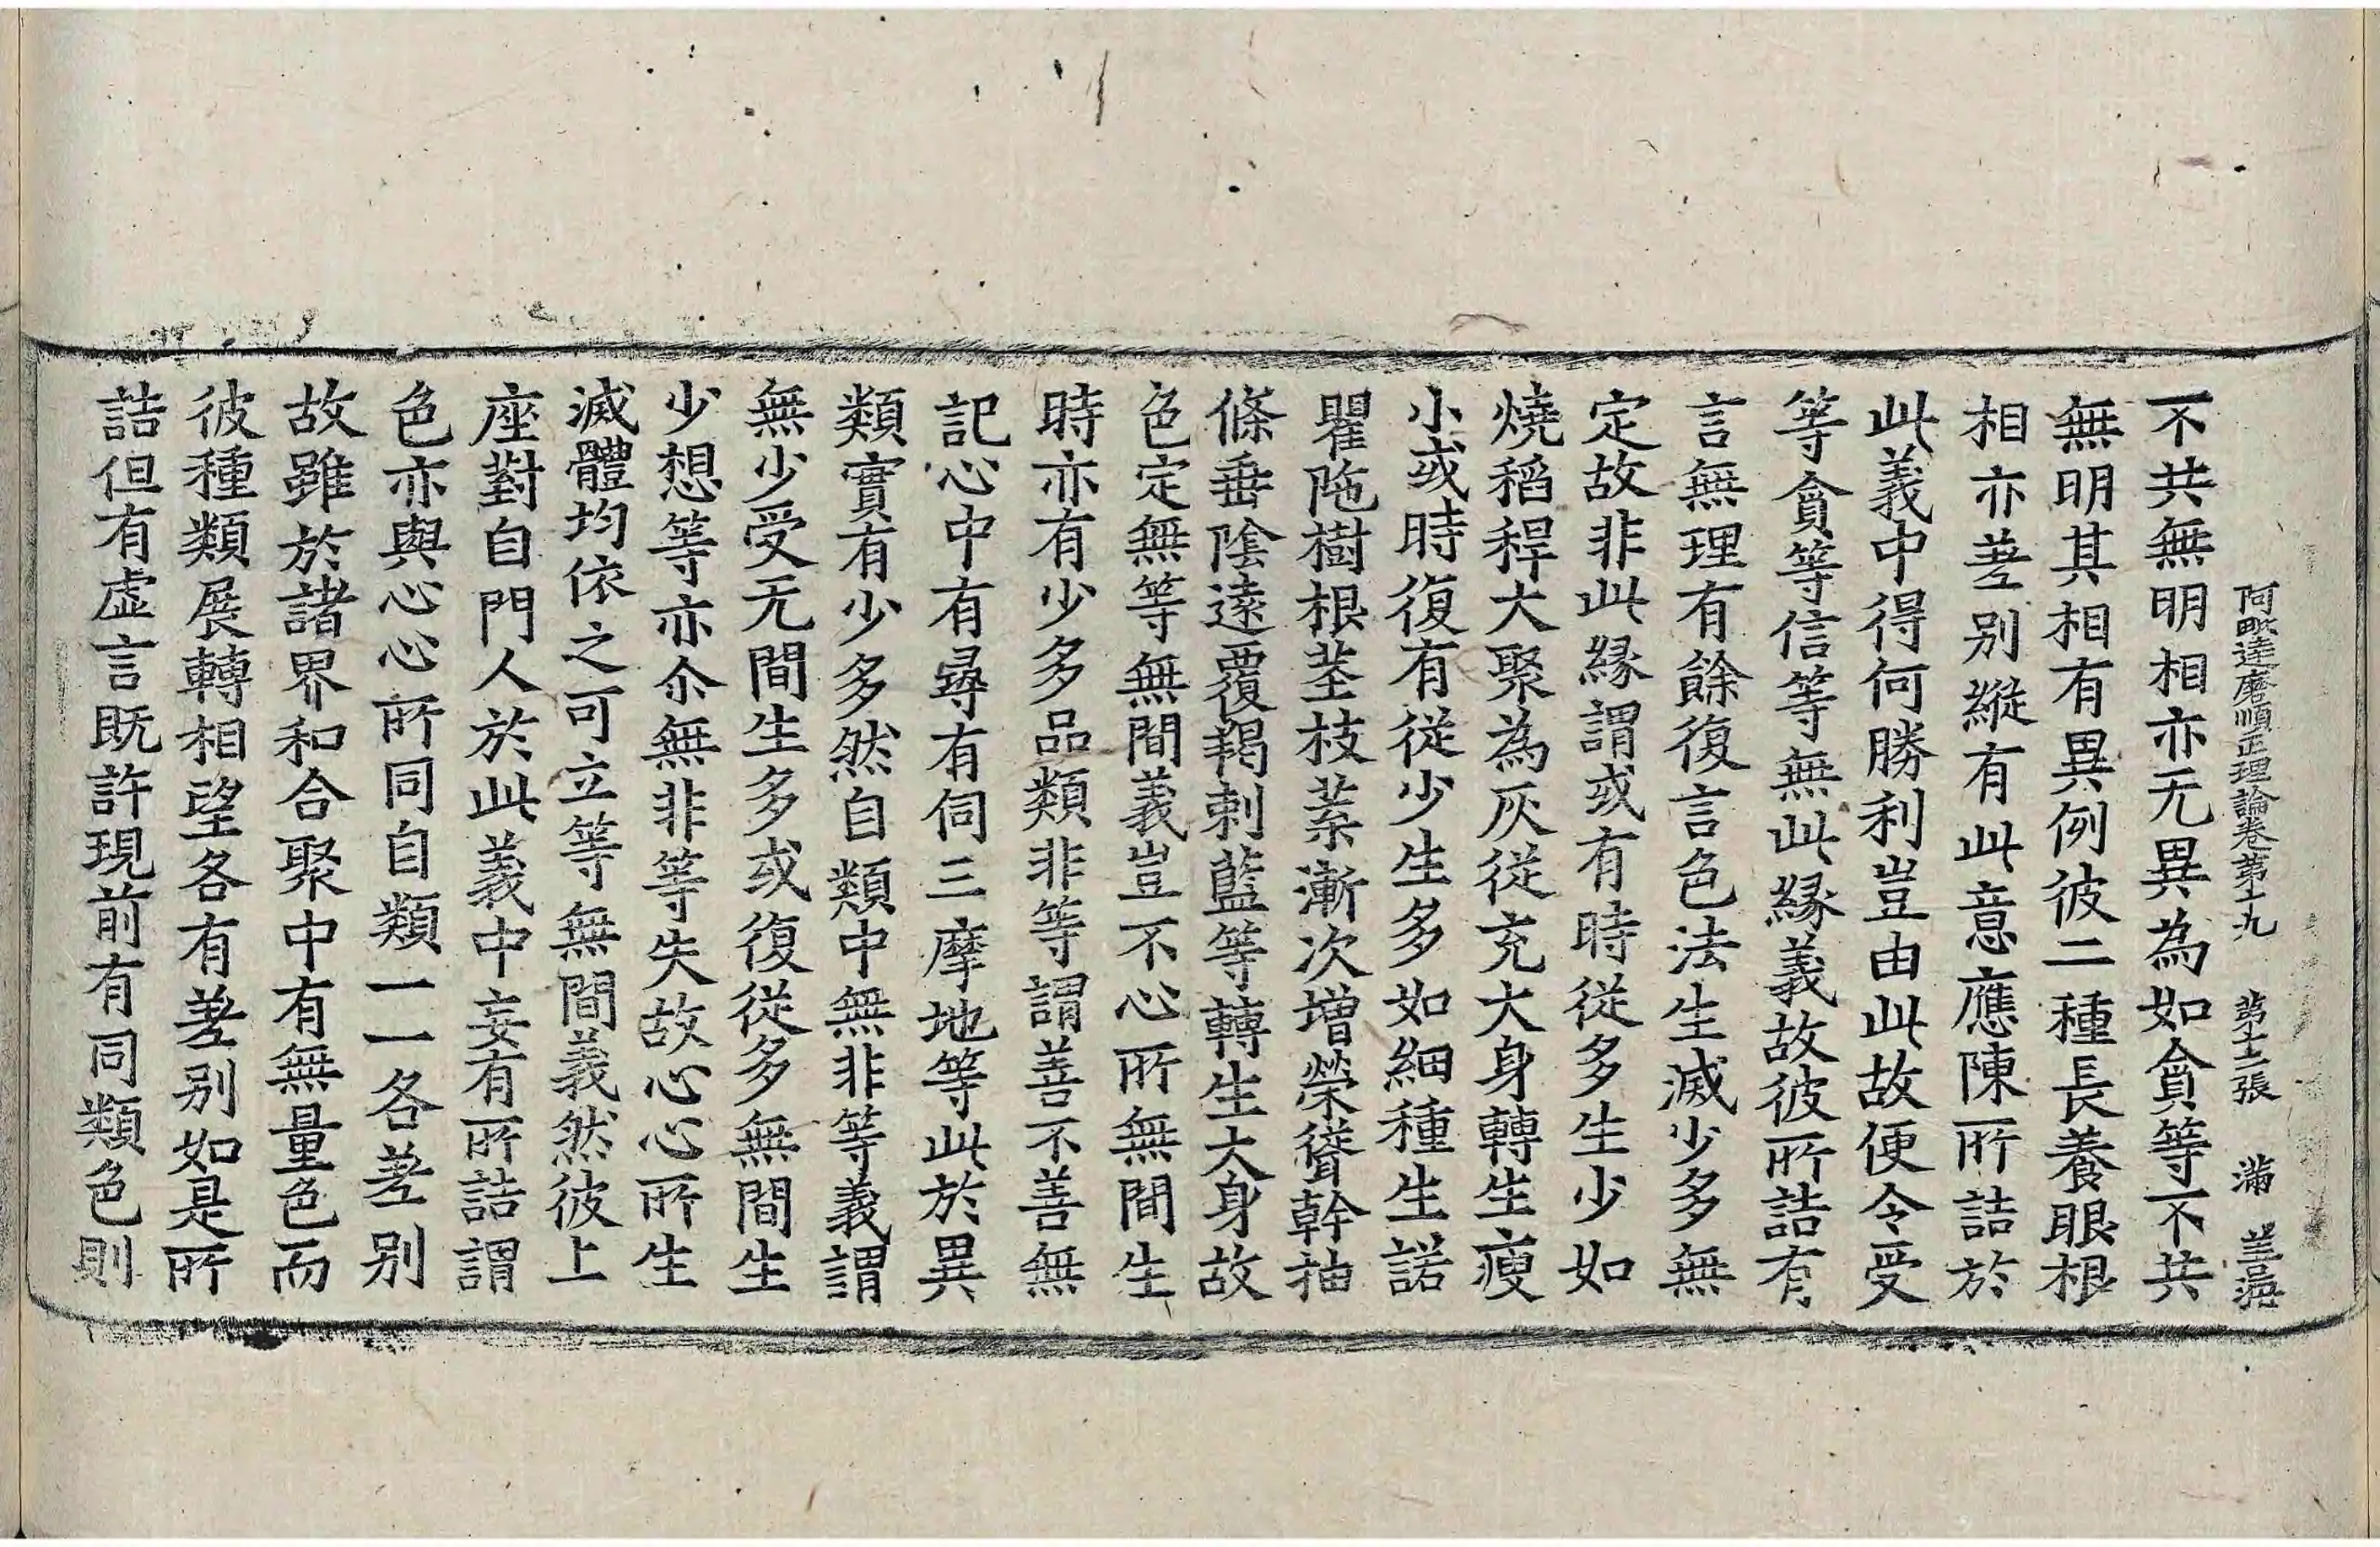 阿毗達磨順正理論卷第十九 第十二張 滿
不共無明相亦无異為如貪等不共
無明其相有異例彼二種長養眼根
相亦差别縱有此意應陳所詰於
此義中得何勝利豈由此故便令受
等貪等信等無此緣義故彼所詰有
言無理有餘復言色法生滅少多無
定故非此緣謂或有時從多生少如
燒稻稈大聚為灰從充大身轉生瘦
小或時復有從少生多如細種生諾
瞿陁樹根茎枝葉漸次增榮聳幹抽
條垂陰遠覆羯剌藍等轉生大身故
色定無等無間義豈不心所無間生
時亦有少多品類非等謂善不善無
記心中有尋有伺三摩地等此於異
類實有少多然自類中無非等義謂
無少受无間生多或復從多無間生
少想等亦尒無非等失故心心所生
滅體均依之可立等無間義然彼上
座對自門人於此義中妄有所詰謂
色亦與心心所同自類一一各差别
故雖於諸界和合聚中有無量色而
彼種類展轉相望各有差别如是所
詰但有虛言既許現前有同類色則